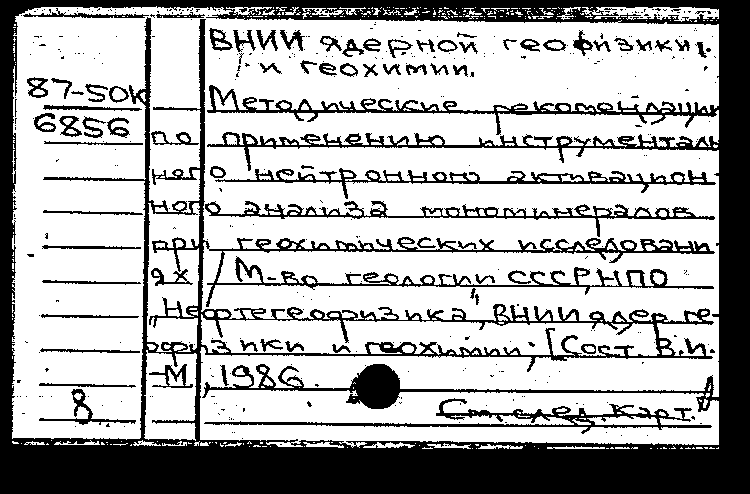 ВНИИ ядерной геофизики
и геохимии.
87-50к
Методические рекомендации
6856
по применению инструменталь
ного нейтронного активацион-
ного анализа мономинералов
при геохимических исследовани-
ях / М-во геологии СССР, НПО
„Нефтегеофизика", ВНИИ ядер. ге-
офизики и геохимии; [Сост. В.И.
-М, 1986
8
См. след. карт.